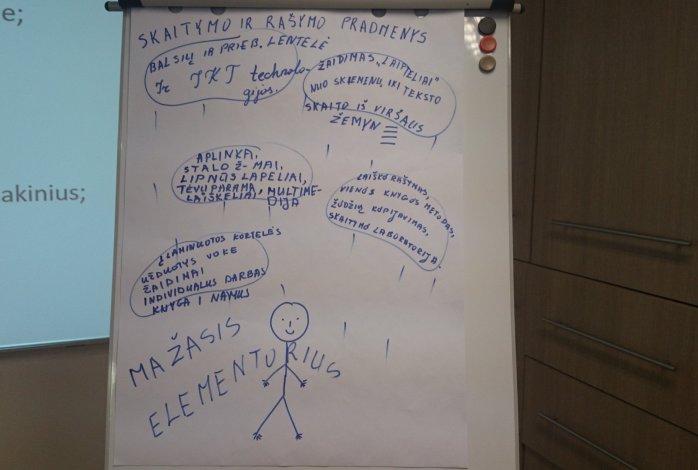 e;
akinius;
SKAITYMO IR RAŠYMO PRADMENYS
BALSIŲ IR PRIEB. LENTELĖ
Ir IKT technolo-
gijos.
ŽAIDIMAS „LAIPTELIAI"
NUO SKIEMENŲ IKI TEKSTO
SKAITO IŠ VIRŠAUS
ŽEMYN
APLINKA,
STALO Ž-MAI,
LIPNŪS LAPELIAI,
TĖVŲ PARAMA, MULTIME-
LAIŠKELIAI DIJA
LAIŠKO RAŠYMAS,
VIENOS KNYGOS METODAS,
ŽODŽIŲ KOPIJAVIMAS,
SKAITYMO LABORATORIJA.
LAMINUOTOS KORTELĖS
UŽDUOTYS VOKE
ŽAIDIMAI
INDIVIDUALUS DARBAS
KNYGA Į NAMUS
MAŽASIS
ELEMENTORIUS